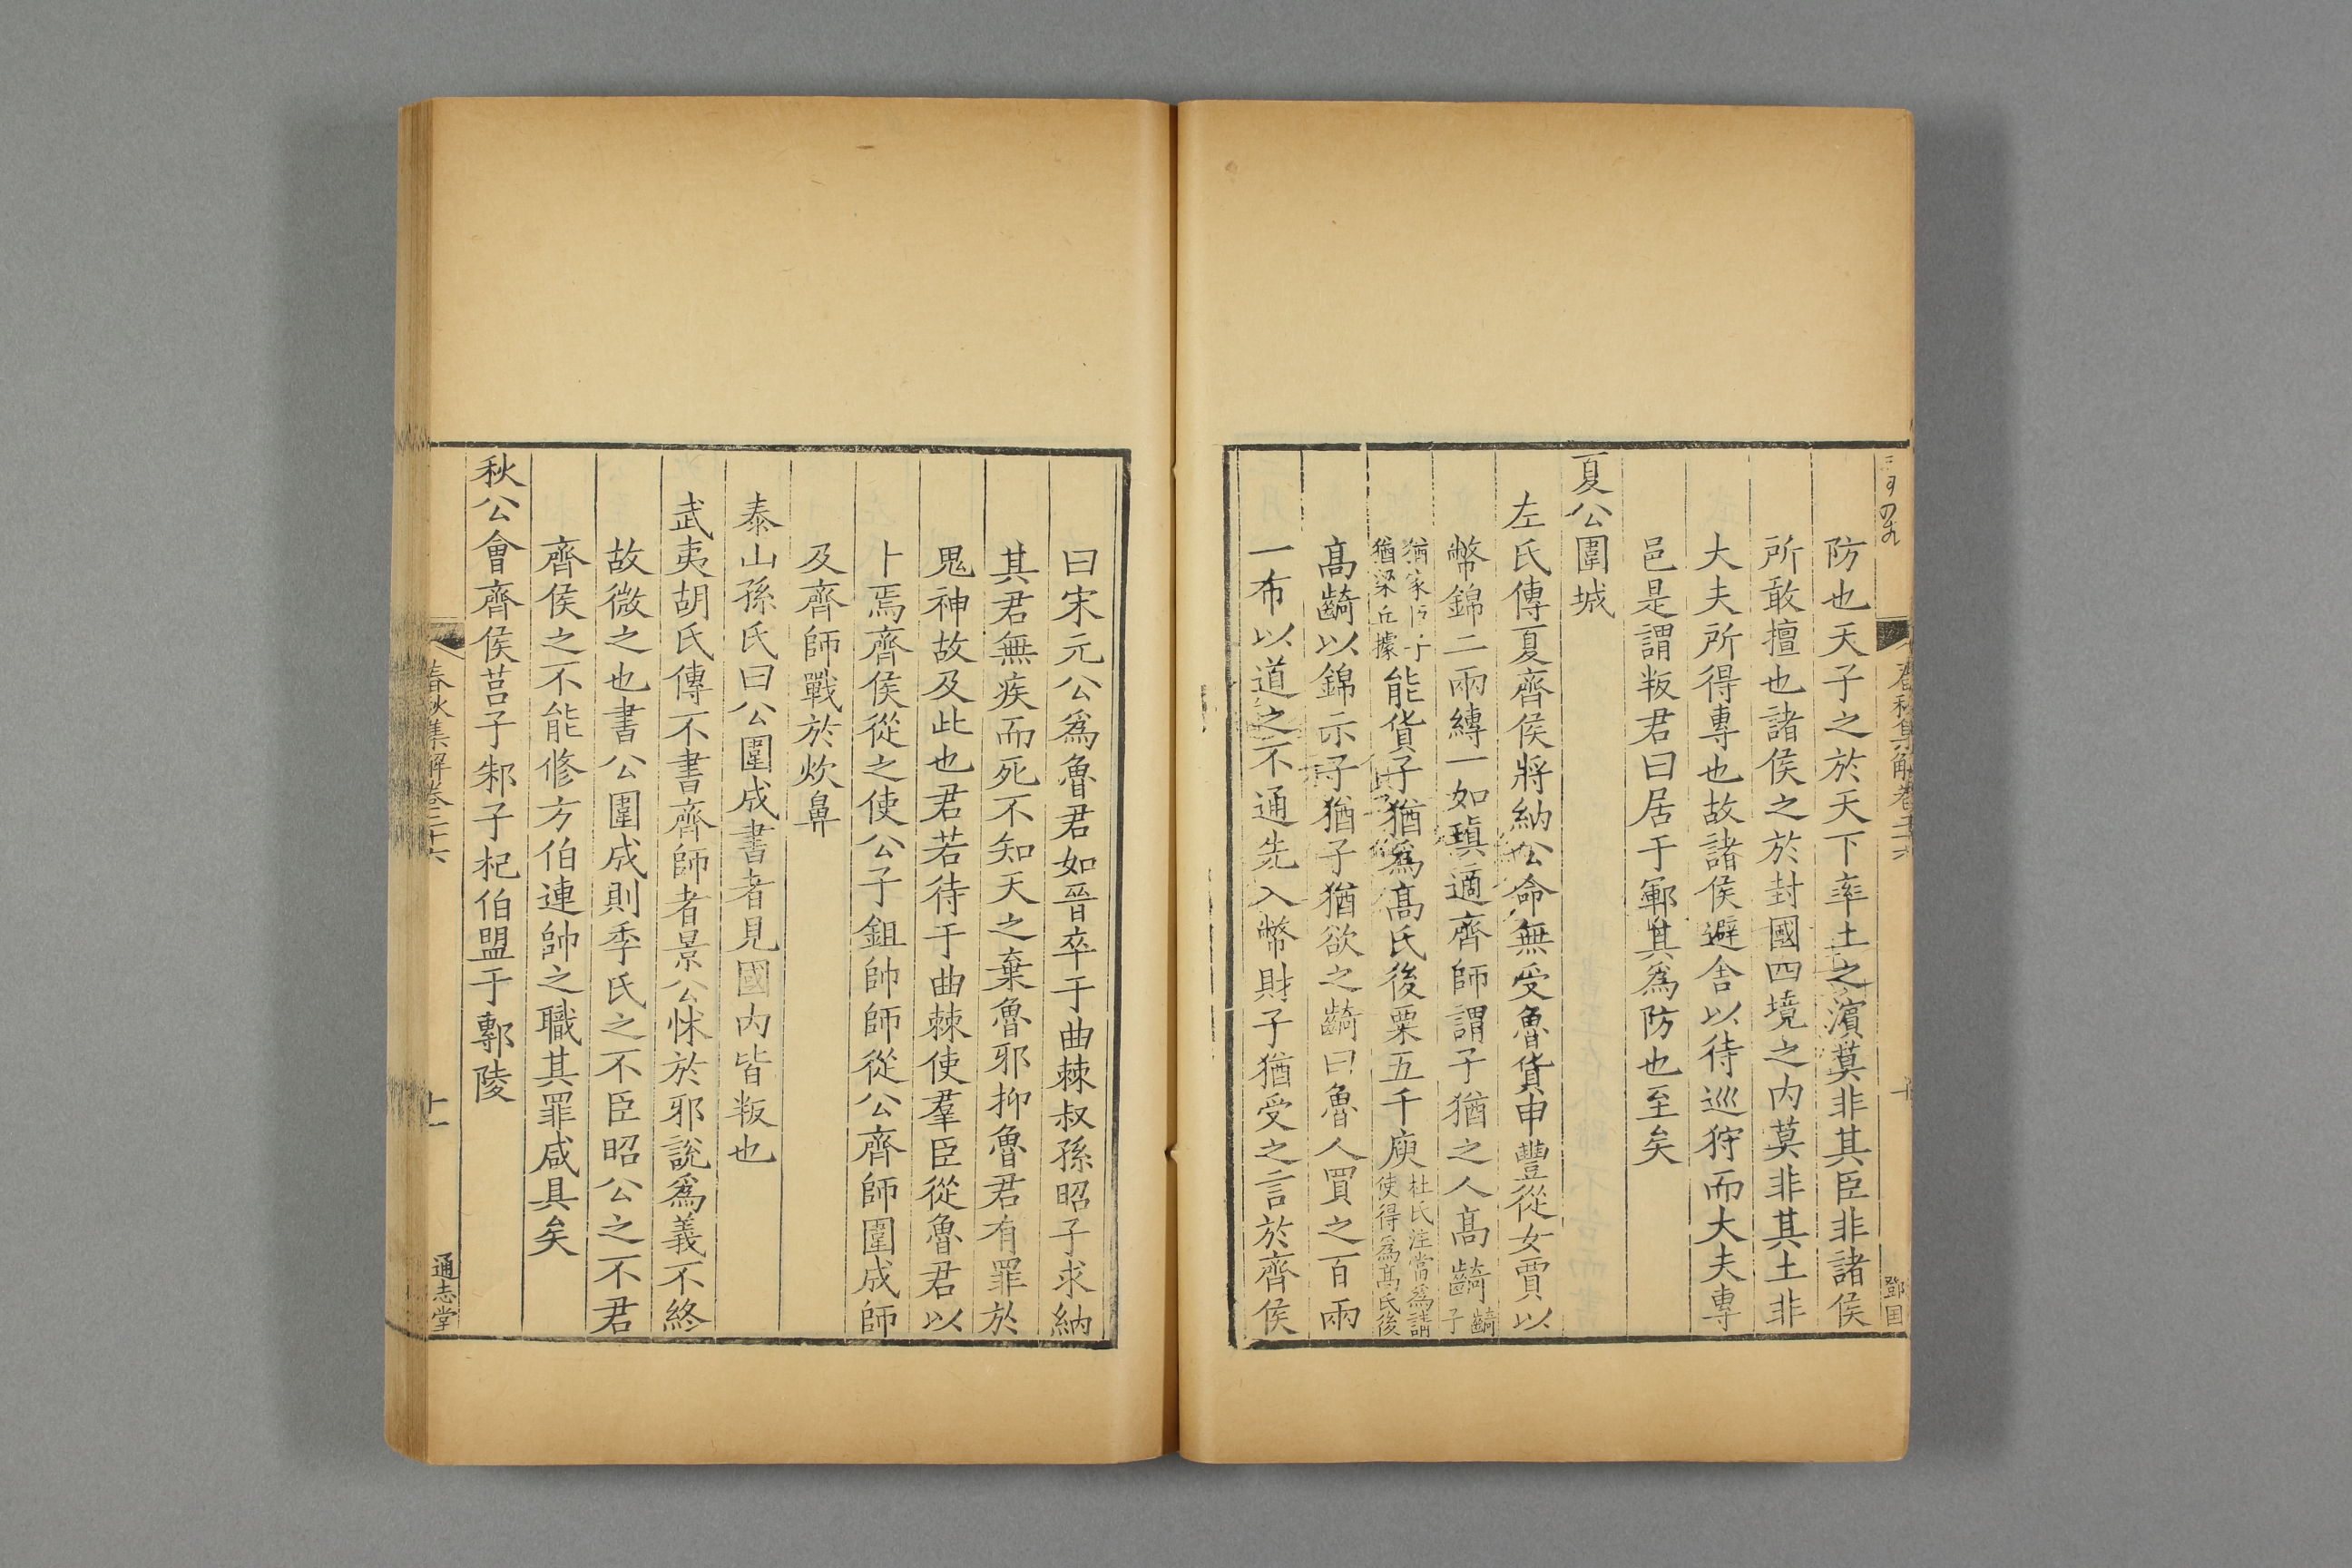 春秋集解卷二十六
防也天子之於天下率土之濱莫非其臣非諸侯
所敢擅也諸侯之於封國四境之内莫非其土非
大夫所得專也故諸侯避舍以待巡狩而大夫專
邑是謂叛君曰居于鄆其爲防也至矣
夏公圍城
左氏傳夏齊侯將納公命無受魯貨申豐從女賈以
幣錦二兩縛一如瑱適齊師謂子猶之人高齮齮子
猶家臣子猶梁丘據能貨子猶爲高氏後粟五千庾杜氏注當爲請使得爲高氏後
高齮以錦示子猶子猶欲之齮曰魯人買之百兩
一布以道之不通先入幣財子猶受之言於齊侯
曰宋元公爲魯君如晉卒于曲棘叔孫昭子求納
其君無疾而死不知天之棄魯邪抑魯君有罪於
鬼神故及此也君若待于曲棘使羣臣從魯君以
卜焉齊侯從之使公子鉏帥師從公齊師圍成師
及齊師戰於炊鼻
泰山孫氏曰公圍成書者見國内皆叛也
武夷胡氏傳不書齊師者景公怵於邪說爲義不終
故微之也書公圍成則季氏之不臣昭公之不君
齊侯之不能修方伯連帥之職其罪咸具矣
秋公會齊侯莒子邾子杞伯盟于鄟陵
春秋集解卷二十六
十一
通志堂